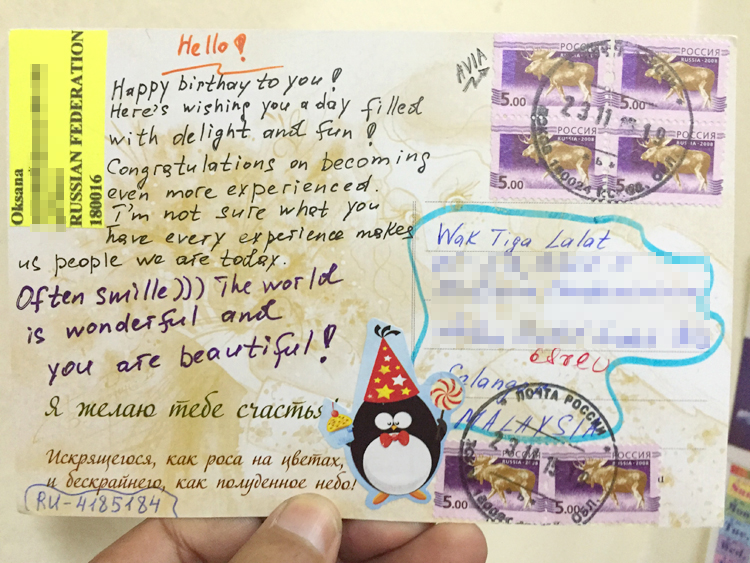 Hello!
Oksana
RUSSIAN FEDERATION
180016
Happy birthay to you!
Here's wishing you a day filled
with delight and fun!
Congratulations on becoming
even more experienced.
I'm not sure what you
have every experience makes
us people we are today.
Often smille))) The world
is wonderful and
you are beautiful!
Я желаю тебе счастья!
Искрящегося, как роса на цветах,
и бескрайнего, как полуденное небо!
RU-4185184
AVIA
РОССИЯ
RUSSIA-2008
5.00
РОССИЯ
RUSSIA-2008
5.00
5.00
5.00
Wak Tiga Lalat
MALAYSIA
ПОЧТА РОССИИ
RUSSIA-2008
RUSSIA-2008
5.00
5.00